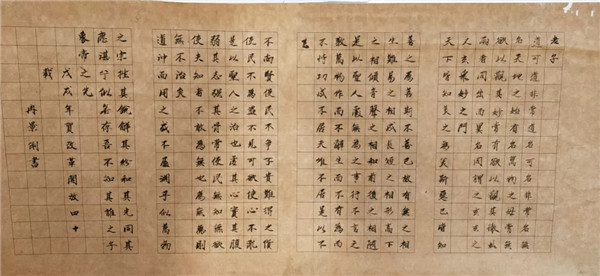 老子
道可道非常道名可名非常名無
名天地之始有名萬物之母常無
欲以觀其妙常有欲以觀其徼此
兩者同出而異名同謂之玄玄之
又玄眾妙之門
天下皆知美之為美斯惡已皆知
善之為善斯不善已故有無之相
生難易之相成長短之相形高下
之相傾音聲之相和前後之相隨
是以聖人處無為之事行不言之
教萬物作而不辭生而不有為而
不恃功成不居夫唯不居是以不
去
不尚賢使民不爭不貴難得之貨
使民不為盜不見可欲使心不亂
是以聖人之治也虛其心實其腹
弱其志強其骨常使民無知無欲
使夫知者不敢為也為無為則
無不治矣
道沖而用之或不盈淵乎似萬物
之宗挫其銳解其紛和其光同其
塵湛兮似若存吾不知其誰之子
象帝之先
戊戌年賀改革開放四十
載
冉景書